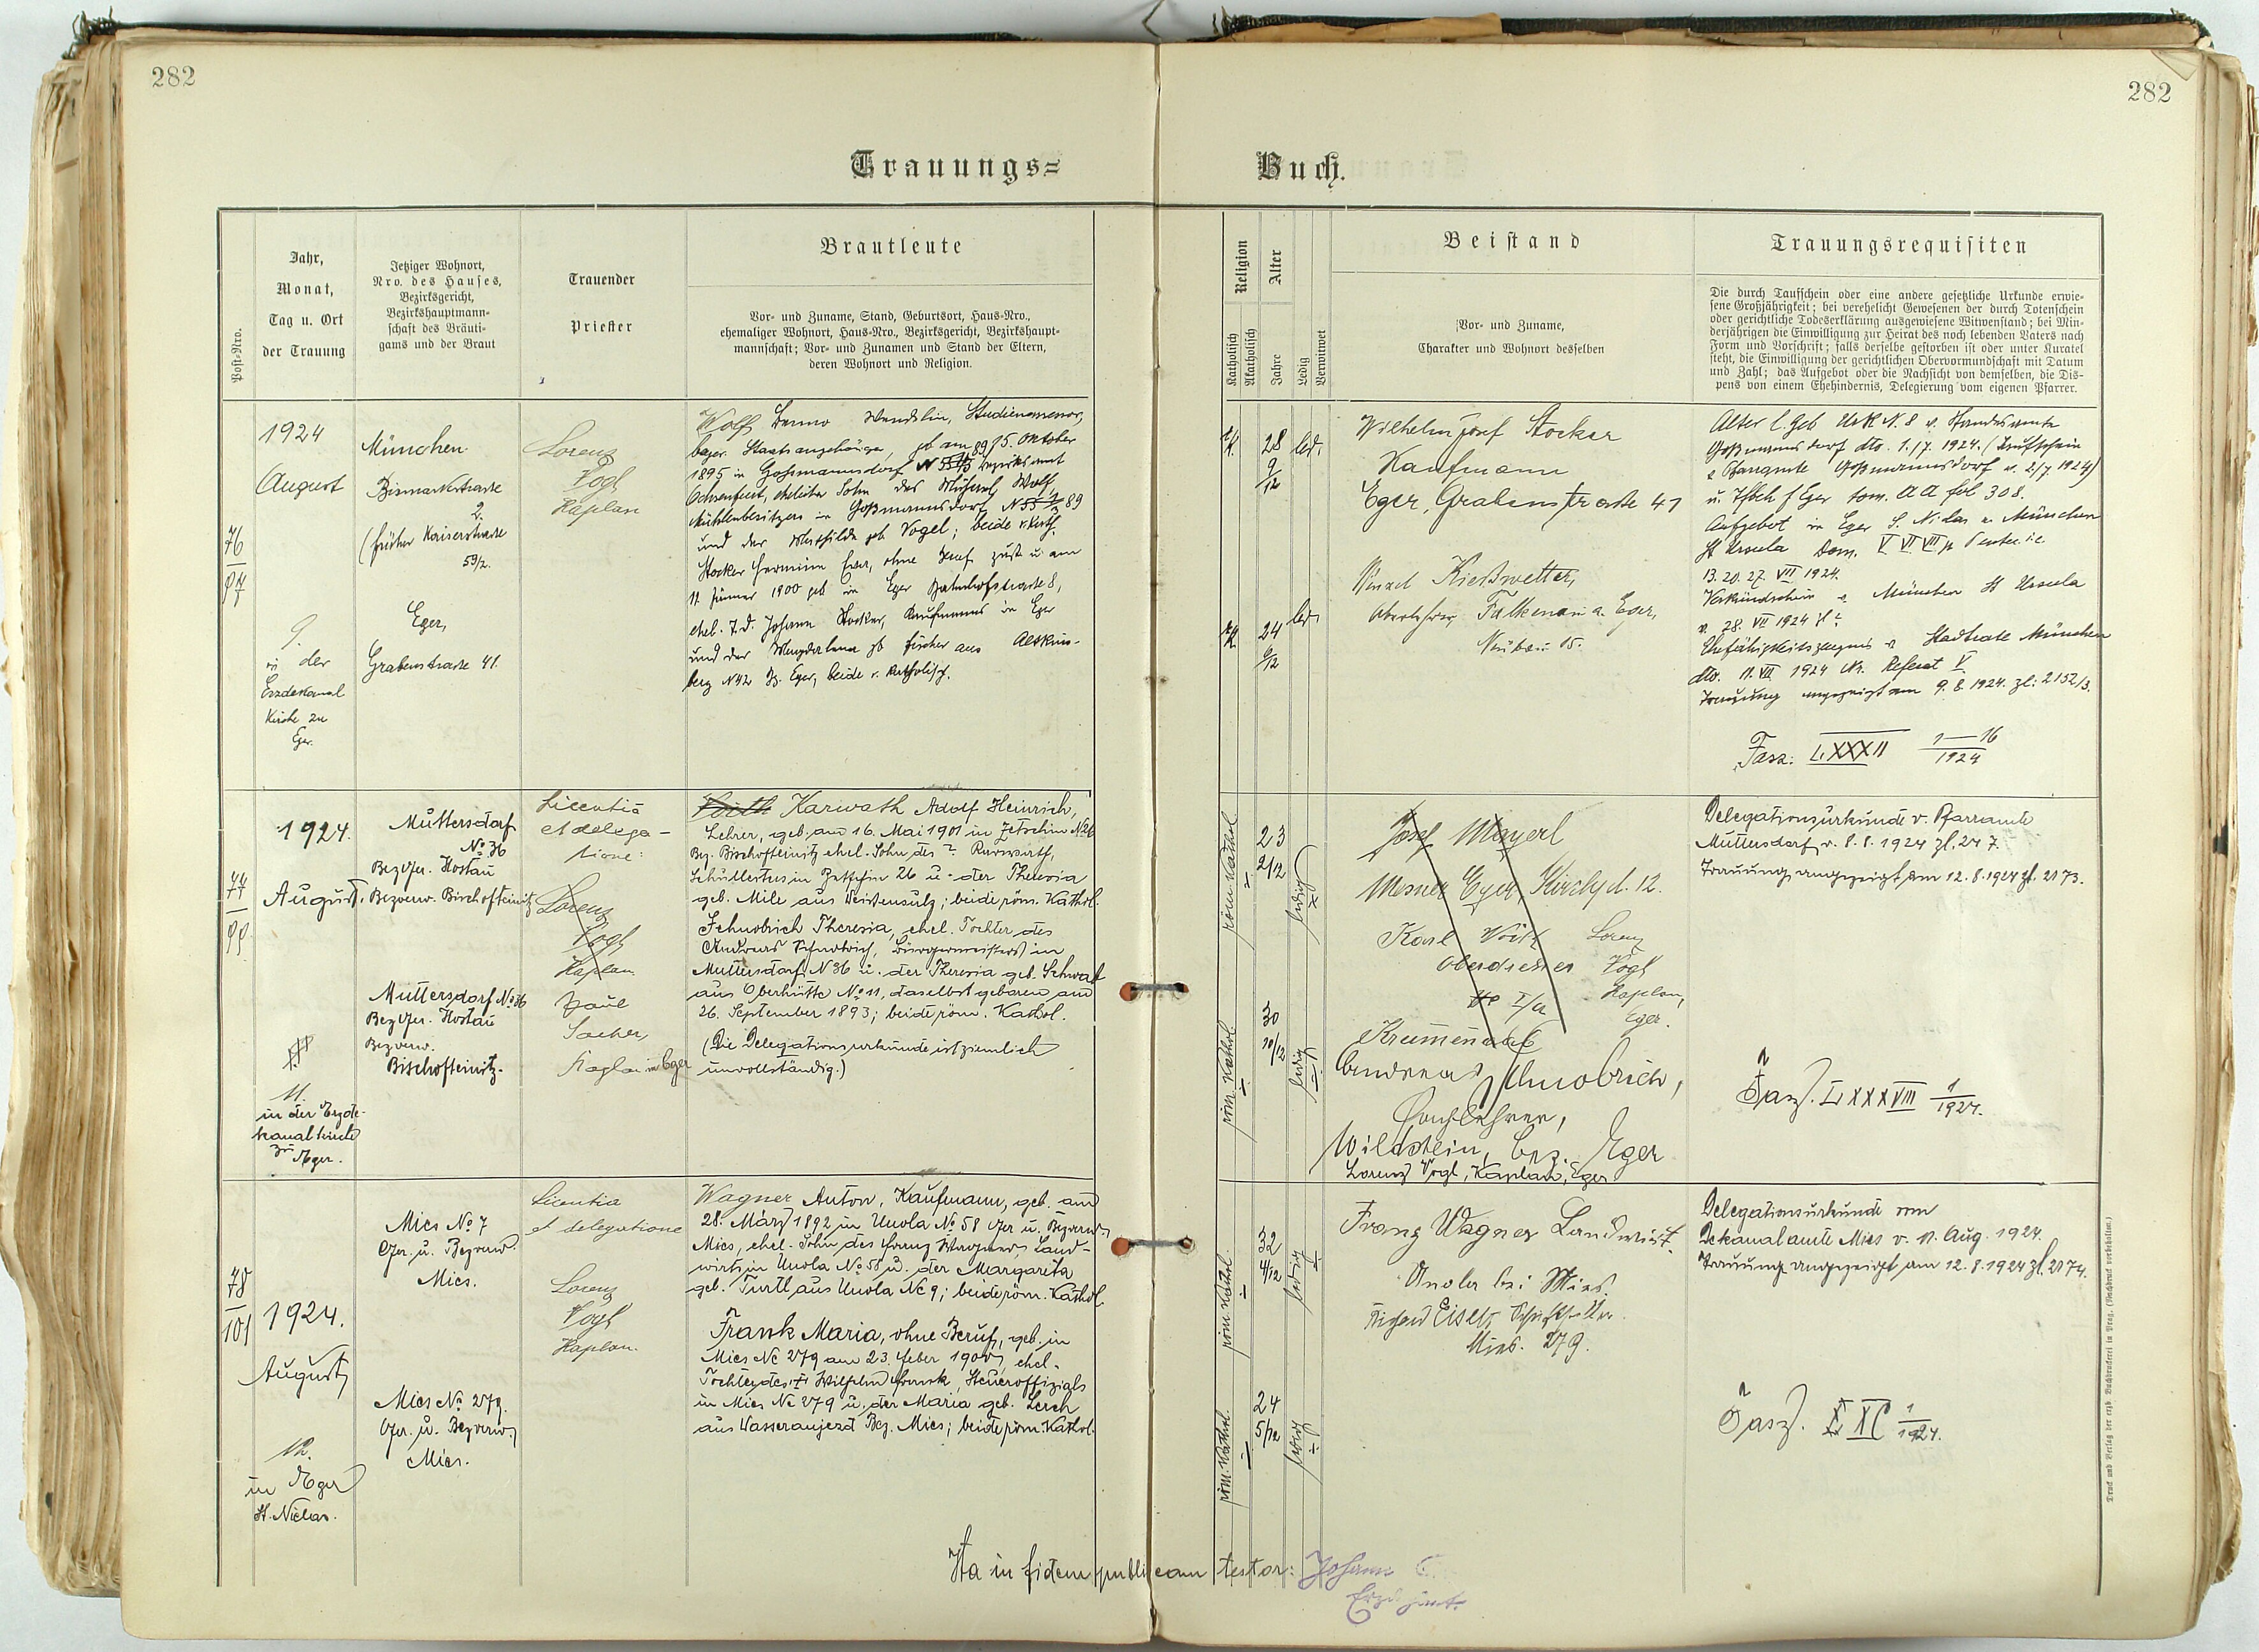 282
282
Trauungs=
Buch.
Post-Nro.
Jahr,
Monat,
Tag u. Ort
der Trauung
Jetziger Wohnort,
Nro. des Hauses,
Bezirksgericht,
Bezirkshauptmann-
schaft des Bräuti-
gams und der Braut
Trauender
Priester
Brautleute
Vor- und Zuname, Stand, Geburtsort, Haus-Nro.,
ehemaliger Wohnort, Haus-Nro., Bezirksgericht, Bezirkshaupt-
mannschaft; Vor- und Zunamen und Stand der Eltern,
deren Wohnort und Religion.
Religion
Katholisch
Akatholisch
Alter
Jahre
Ledig
Verwitwet
Beistand
Vor- und Zuname,
Charakter und Wohnort desselben
Trauungsrequisiten
Die durch Taufschein oder eine andere gesetzliche Urkunde erwie-
sene Großjährigkeit; bei verehelicht Gewesenen der durch Totenschein
oder gerichtliche Todeserklärung ausgewiesene Witwenstand; bei Min-
derjährigen die Einwilligung zur Heirat des noch lebenden Vaters nach
Form und Vorschrift; falls derselbe gestorben ist oder unter Kuratel
steht, die Einwilligung der gerichtlichen Obervormundschaft mit Datum
und Zahl; das Aufgebot oder die Nachsicht von demselben, die Dis-
pens von einem Ehehindernis, Delegierung vom eigenen Pfarrer.
76
97
1924
August
9.
in der
Erzdekanal
Kirche zu
Eger.
München
Bismarkstrasse
2.
(früher Kaiserstrasse
59/2.
Eger,
Grabenstrasse 41.
Lorenz
Vogl
Kaplan
Wolf Benno Wendelin, Studienassessor,
bayer. Staatsangehöriger, geb. am 15. Oktober
1895 in Goßmannsdorf Bezirksamt
Ochsenfurt, ehelicher Sohn des Michael Wolf,
Mühlenbesitzers in Goßmannsdorf N 55 89
und der Mathilde geb Vogel; beide r. kath.
Stocker Hermine ohne Beruf zust. u. am
11. Jänner 1900 geb in Eger Bahnhofstrasse 8,
ehel. T. d. Johann Stocker, Kaufmanns in Eger
und der Magdalena gb Fischer aus Altkins-
berg N 42 Bz. Eger, beide r. katholisch.
28
9/12
led.
24
6/12
led.
Wilhelm Josef Stocker
Kaufmann
Eger, Grabenstrasse 41
Wenzel Kießwetter,
Oberlehrer, Falkenau a. Eger,
Neubau 15.
Alter l. Geb Urk N. 8 v. Standesamte
Goßmannsdorf dto. 1./7. 1924. (Taufschein
v. Pfarramte Goßmannsdorf v. 2/7 1924)
u. Tfbch f Eger tom. AA fol 308.
Aufgebot in Eger S. Niclas u. München
St Ursula Dom. V VI VII p Pent. i.e.
13. 20. 27. VII 1924.
Verkündschein v. München St Ursula
v. 28. VII 1924
Ehefähigkeitszeugnis v Stadtrate München
dto. 11. VII 1924 Nr. Referat V
Trauung angezeigt am 9. 8. 1924. Zl: 2152/3.
Fasz: LXXXII 1—16
1924
77
99
1924.
August,
11.
in der Erzde-
kanalkirche
zu Eger.
Muttersdorf
No 36
Bez Ger. Hostau
Bezverw. Bischofteinitz
Muttersdorf No 36
Bez Ger. Hostau
Bezverw.
Bischofteinitz.
Licentiâ
et delega-
tione:
Lorenz
Vogl
Kaplan
Paul
Sacher,
Kaplan in Eger
Voith Karwath Adolf Heinrich,
Lehrer, geb. am 16. Mai 1901 in Zetschin N 26
Bez. Bischofteinitz ehel. Sohn des
in Zetschin 26 u. der Theresia
geb. Mile aus Weissensulz; beide röm. Kathol.
Schnobrich Theresia, ehel. Tochter des
Andreas Schnobrich, Bürgermeisters in
Muttersdorf N 36 u. der Theresia geb. Schwab
aus Oberhütte No 11, daselbst geboren am
26. September 1893; beide röm. Kathol.
(Die Delegationsurkunde ist ziemlich
unvollständig.)
röm. Kathol
23
2/12
ledig
röm. Kathol
30
10/12
ledig
Josef Mayerl
Mesner Eger, Kirchpl. 12.
Karl Voith
Oberlehrer
Lorenz
Vogl
Kaplan,
Eger.
Krummenab
Andreas Schnobrich,
Fachlehrer,
Wildstein, bez. Eger
Lorenz Vogl, Kaplan, Eger
Delegationsurkunde v. Pfarramte
Muttersdorf v. 8. 8. 1924 Zl. 247.
Trauung angezeigt am 12. 8. 1924 Zl. 2173.
Fasz. LXXXVIII 1
1924.
78
101
1924.
August
12.
in Eger
St. Niclas.
Mies No 7
Ger. u. Bezverw.
Mies.
Mies No 279.
Ger. u. Bezverw.
Mies.
Licentia
et delegatione
Lorenz
Vogl
Kaplan.
Wagner Anton, Kaufmann, geb. am
28. März 1892 in Unola No 58 Ger u. Bezverw.
Mies, ehel. Sohn des Franz Wagner, Land-
wirts in Unola No 58 u. der Margareta
geb. Turtl aus Unola No 9; beide röm. Kathol.
Frank Maria, ohne Beruf, geb. in
Mies No 279 am 23. Feber 1900, ehel.
Tochter des † Wilhelm Frank, Steueroffizials
in Mies No 279 u. der Maria geb. Lerch
aus Wasseraujezd Bez. Mies; beide röm. Kathol.
röm. Kathol.
32
4/12
ledig
röm. Kathol.
24
5/12
ledig
Franz Wagner Landwirt.
Unola bei Mies.
Mies. 279.
Delegationsurkunde vom
Dekanalamte Mies v. 11. Aug. 1924.
Trauung angezeigt am 12. 8. 1924 Zl. 2174.
Fasz. XC 1
1924.
Ita in fidem publicam testor: Johann
Druck und Verlag der erzb. Buchdruckerei in Prag. (Nachdruck vorbehalten.)